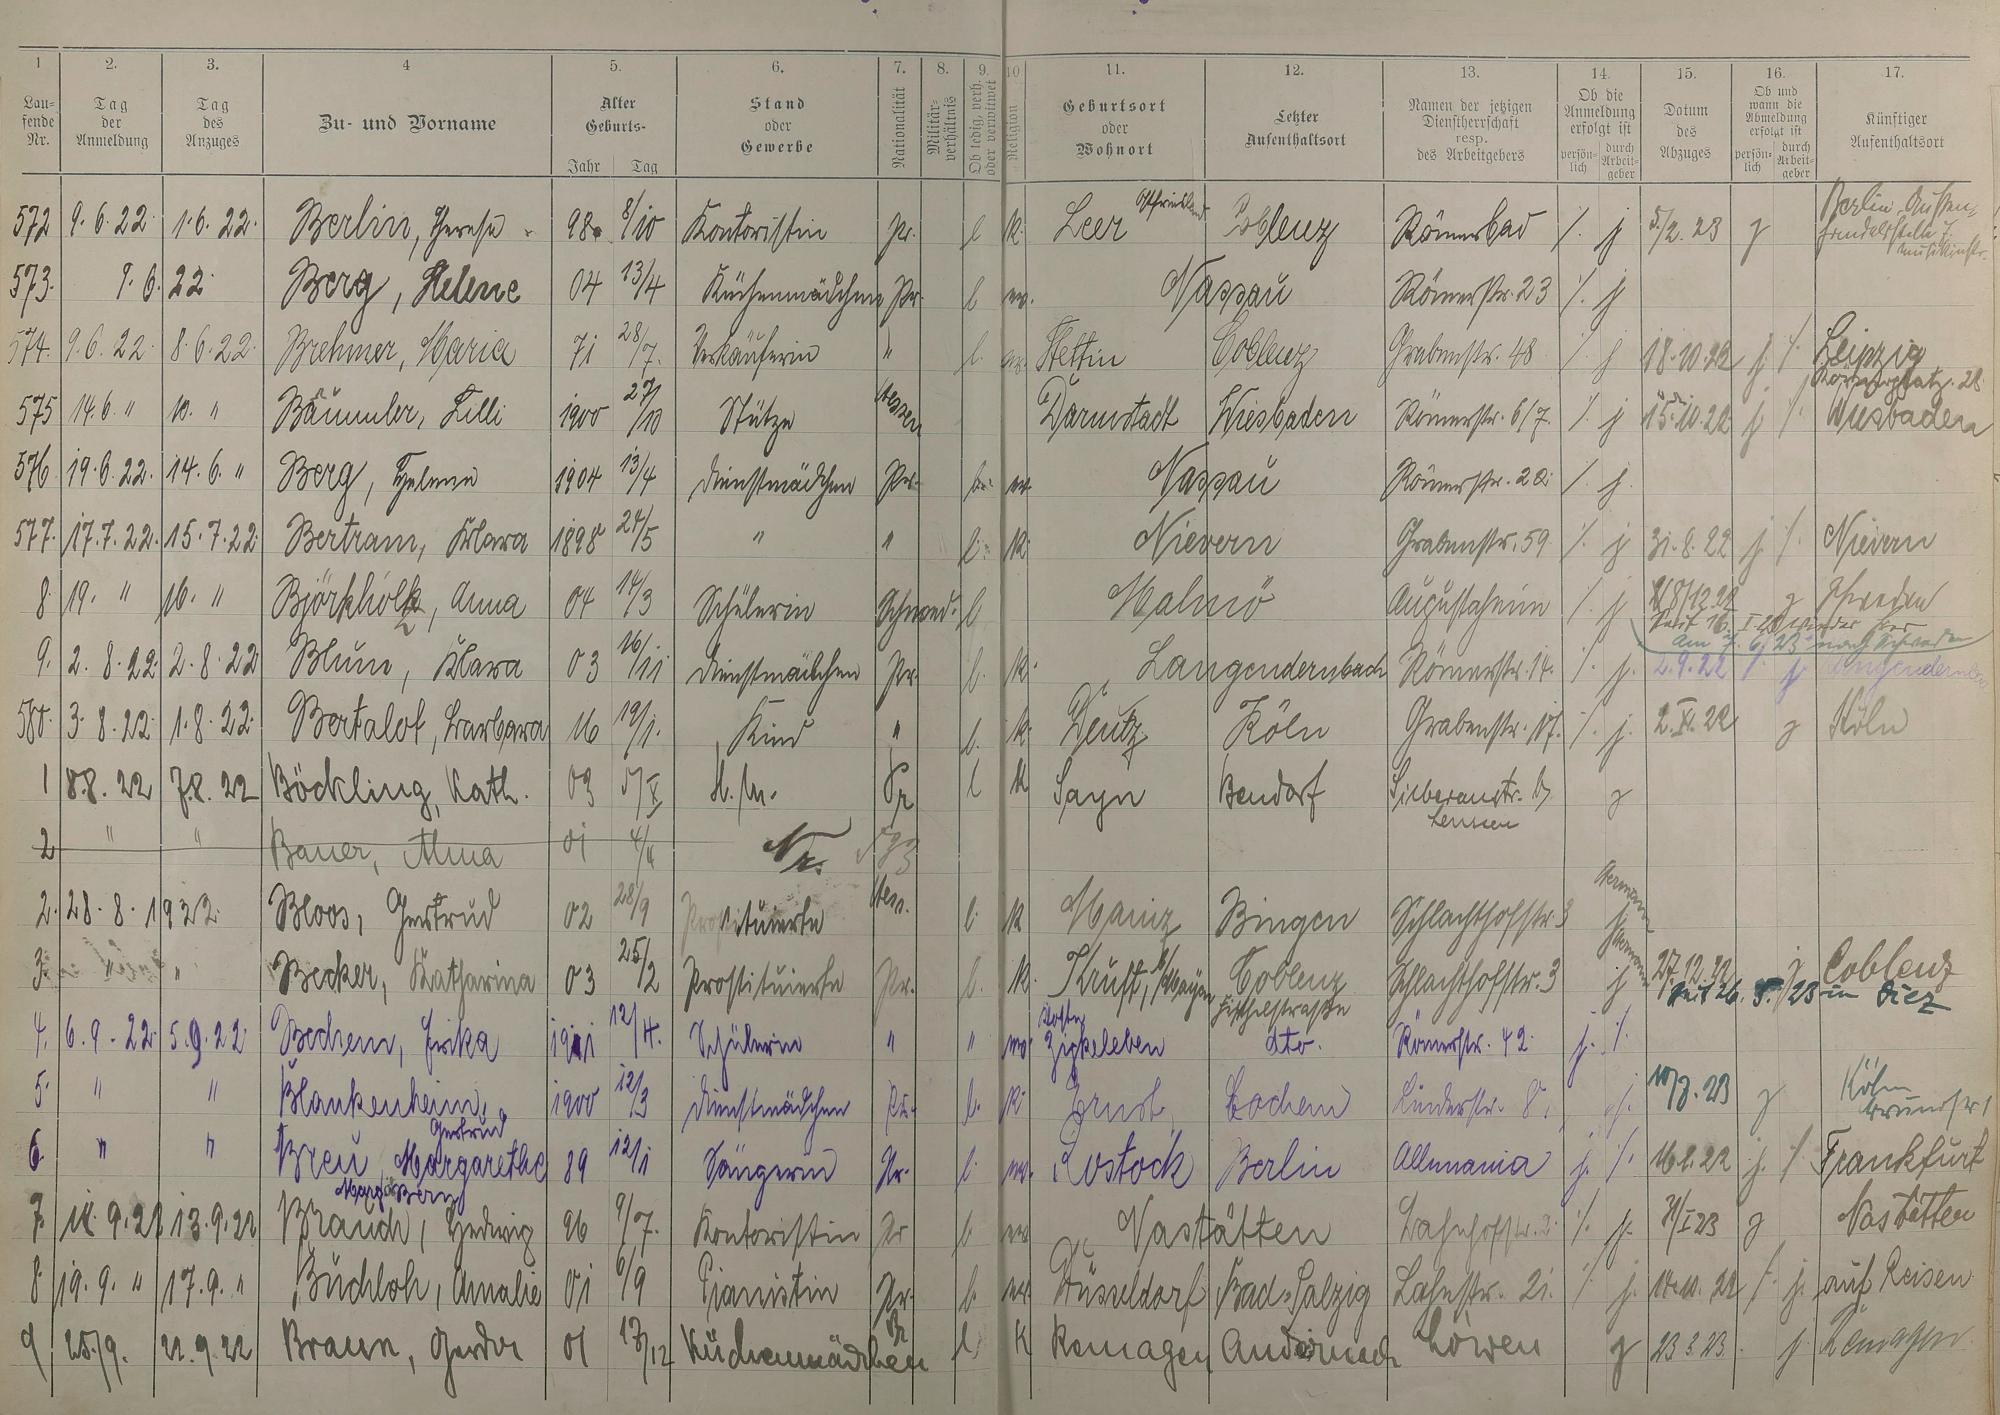 1 2. 3. 4 5. 6. 7. 8. 9. 10 11. 12. 13. 14. 15. 16. 17.
Lau-fende Nr. Tag der Anmeldung Tag des Anzuges Zu- und Vorname Alter Geburts- Jahr Tag Stand oder Gewerbe Nationalität Militär-verhältnis Ob ledig, verh. oder verwitwet Religion Geburtsort oder Wohnort Letzter Aufenthaltsort Namen der jetzigen Dienstherrschaft resp. des Arbeitgebers Ob die Anmeldung erfolgt ist persön-lich durch Arbeit-geber Datum des Abzuges Ob und wann die Abmeldung erfolgt ist persön-lich durch Arbeit-geber Künftiger Aufenthaltsort
572 9.6.22. 1.6.22. Berlin, Therese 98. 8/10 Kontoristin Pr. l k. Leer Ostfriesland Coblenz Römerbad /. j 5/2.23 j Berlin
573. 9.6.22 Berg, Helene 04 13/4 Küchenmädchen Pr. l ev. Nassau Römerstr. 23 /. j
574. 9.6.22. 8.6.22. Brehmer, Maria 71 28/7. Verkäuferin " l. ev. Stettin Coblenz Grabenstr. 48 /. j 18.10.22 j. /. Leipzig
575 14.6. " 10. " Bäumler, Lilli 1900 27/10 Stütze Hessen Darmstadt Wiesbaden Römerstr. 6/7. /. j 15.10.22 j /. Wiesbaden
576 19.6.22. 14.6. " Berg, Helene 1904 13/4 Dienstmädchen Pr. ev. Nassau Römerstr. 22. /. j.
577. 17.7.22. 15.7.22. Bertram, Klara 1898 24/5 " " l. k. Nievern Grabenstr. 59 /. j 31.8.22 j. /. Nievern
8. 19. " 16. " Björkholk, Anna 04 14/3 Schülerin Schwed. l Malmö Augustaheim /. j j Schweden
9. 2.8.22. 2.8.22 Blum, Klara 03 16/11 Dienstmädchen Pr. l. k. Langendernbach Römerstr. 14. /. j. 2.9.22 /. j Langendernbach
580. 3.8.22. 1.8.22. Bertalot, Barbara 16 19/1. Kind " l. k. Deutz Köln Grabenstr. 17. /. j. 2.XI.22 j Köln
1 8.8.22 7.8.22 Böckling, Kath. 03 5/X Pr l k Sayn Bendorf Silberaustr. j
2 " " Bauer, Alma 01 4/4 Nr.
2. 28.8.1922. Bloos, Gertrud 02 28/9 Prostituierte Hess. l. k Mainz Bingen Schlachthofstr. 3 Hermann j
3. " " Becker, Katharina 03 25/2 Prostituierte Pr. l. k. Kruft, b/Mayen Coblenz Schlachthofstr. 3 Hermann j 27.12.22 j Coblenz
seit 26. 5. 23 in Diez
4. 6.9.22. 5.9.22 Bechem, Erika 1911 12/4. Schülerin " " Kloster Zipkeleben dto. Römerstr. 42. j. /.
5. " " Blankenheim, Gertrud 1900 12/3 Dienstmädchen Pr. l. k. Ernst, Cochem Lindenstr. 8. j. 10/3.23 j Köln
6. " " Breu, Margarethe 89 12/1 Sängerin Pr. l. ev. Rostock Berlin Allemania j. /. j. /. Frankfurt
7. 14.9.22 13.9.22 Brauch, Hedwig 96 9/7. Kontoristin Pr l. ev Nastätten Bahnhofstr. 2. /. j. j Nastätten
8. 19.9. " 17.9. " Buchloh, Amalie 01 6/9 Pianistin Pr. l. ev. Düsseldorf Bad-Salzig Lahnstr. 21. /. j. /. j. auf Reisen
9 25./9. 22.9.22 Braun, Gerda 01 13/12 Küchenmädchen Pr l. K Remagen Andernach Löwen j 23.3.23. j Remagen